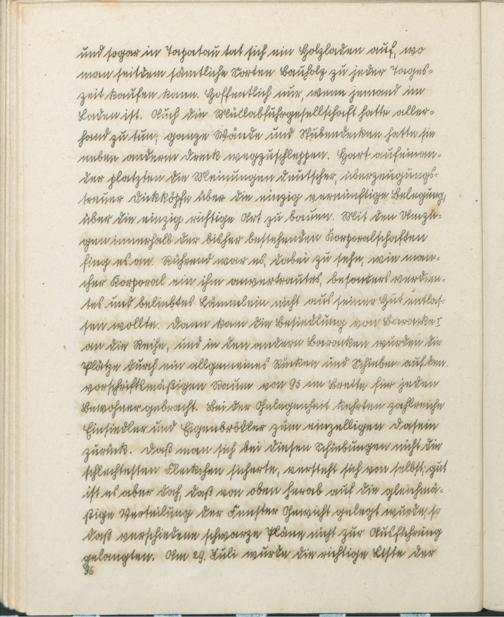 und sogar in Tapatau tat sich ein Holzladen auf, wo
man seitdem sämtliche Sorten Bauholz zu jeder Tages-
zeit kaufen kann. Hoffentlich nur, wenn jemand im
Laden ist. Auch die Müllabfuhrgesellschaft hatte aller-
hand zu tun; ganze Wände und Stubendecken hatte sie
neben anderm Dreck wegzuschleppen. Hart aufeinan-
der platzten die Meinungen deutscher, überzeugungs-
treuer Dickköpfe über die einzig vernünftige Belegung,
über die einzig richtige Art zu bauen. Mit den Umzü-
gen innerhalb der bisher bestehenden Korporalschaften
fing es an. Rührend war es, dabei zu sehn, wie man-
cher Korporal ein ihm anvertrautes, besonders verdien-
tes und beliebtes Lämmlein nicht aus seiner Hut entlas-
sen wollte. Dann kam die Besiedlung von Baracke 1
an die Reihe, und in den andern Baracken wurden die
Plätze durch ein allgemeines Rücken und Schieben auf den
vorschriftsmäßigen Raum von 95 cm Breite für jeden
Bewohner gebracht. Bei der Gelegenheit kehrten zahlreiche
Einsiedler und Eigenbrödler zum einzelligen Dasein
zurück. Daß man sich bei diesen Schiebungen nicht die
schlechtesten Fleckchen sicherte, versteht sich von selbst; gut
ist es aber doch, daß von oben herab auf die gleichmä-
ßige Verteilung der Fenster Gewicht gelegt wurde, so
daß verschiedene schwarze Pläne nicht zur Ausführung
gelangten. Am 29. Juli wurde die richtige Liste der
96